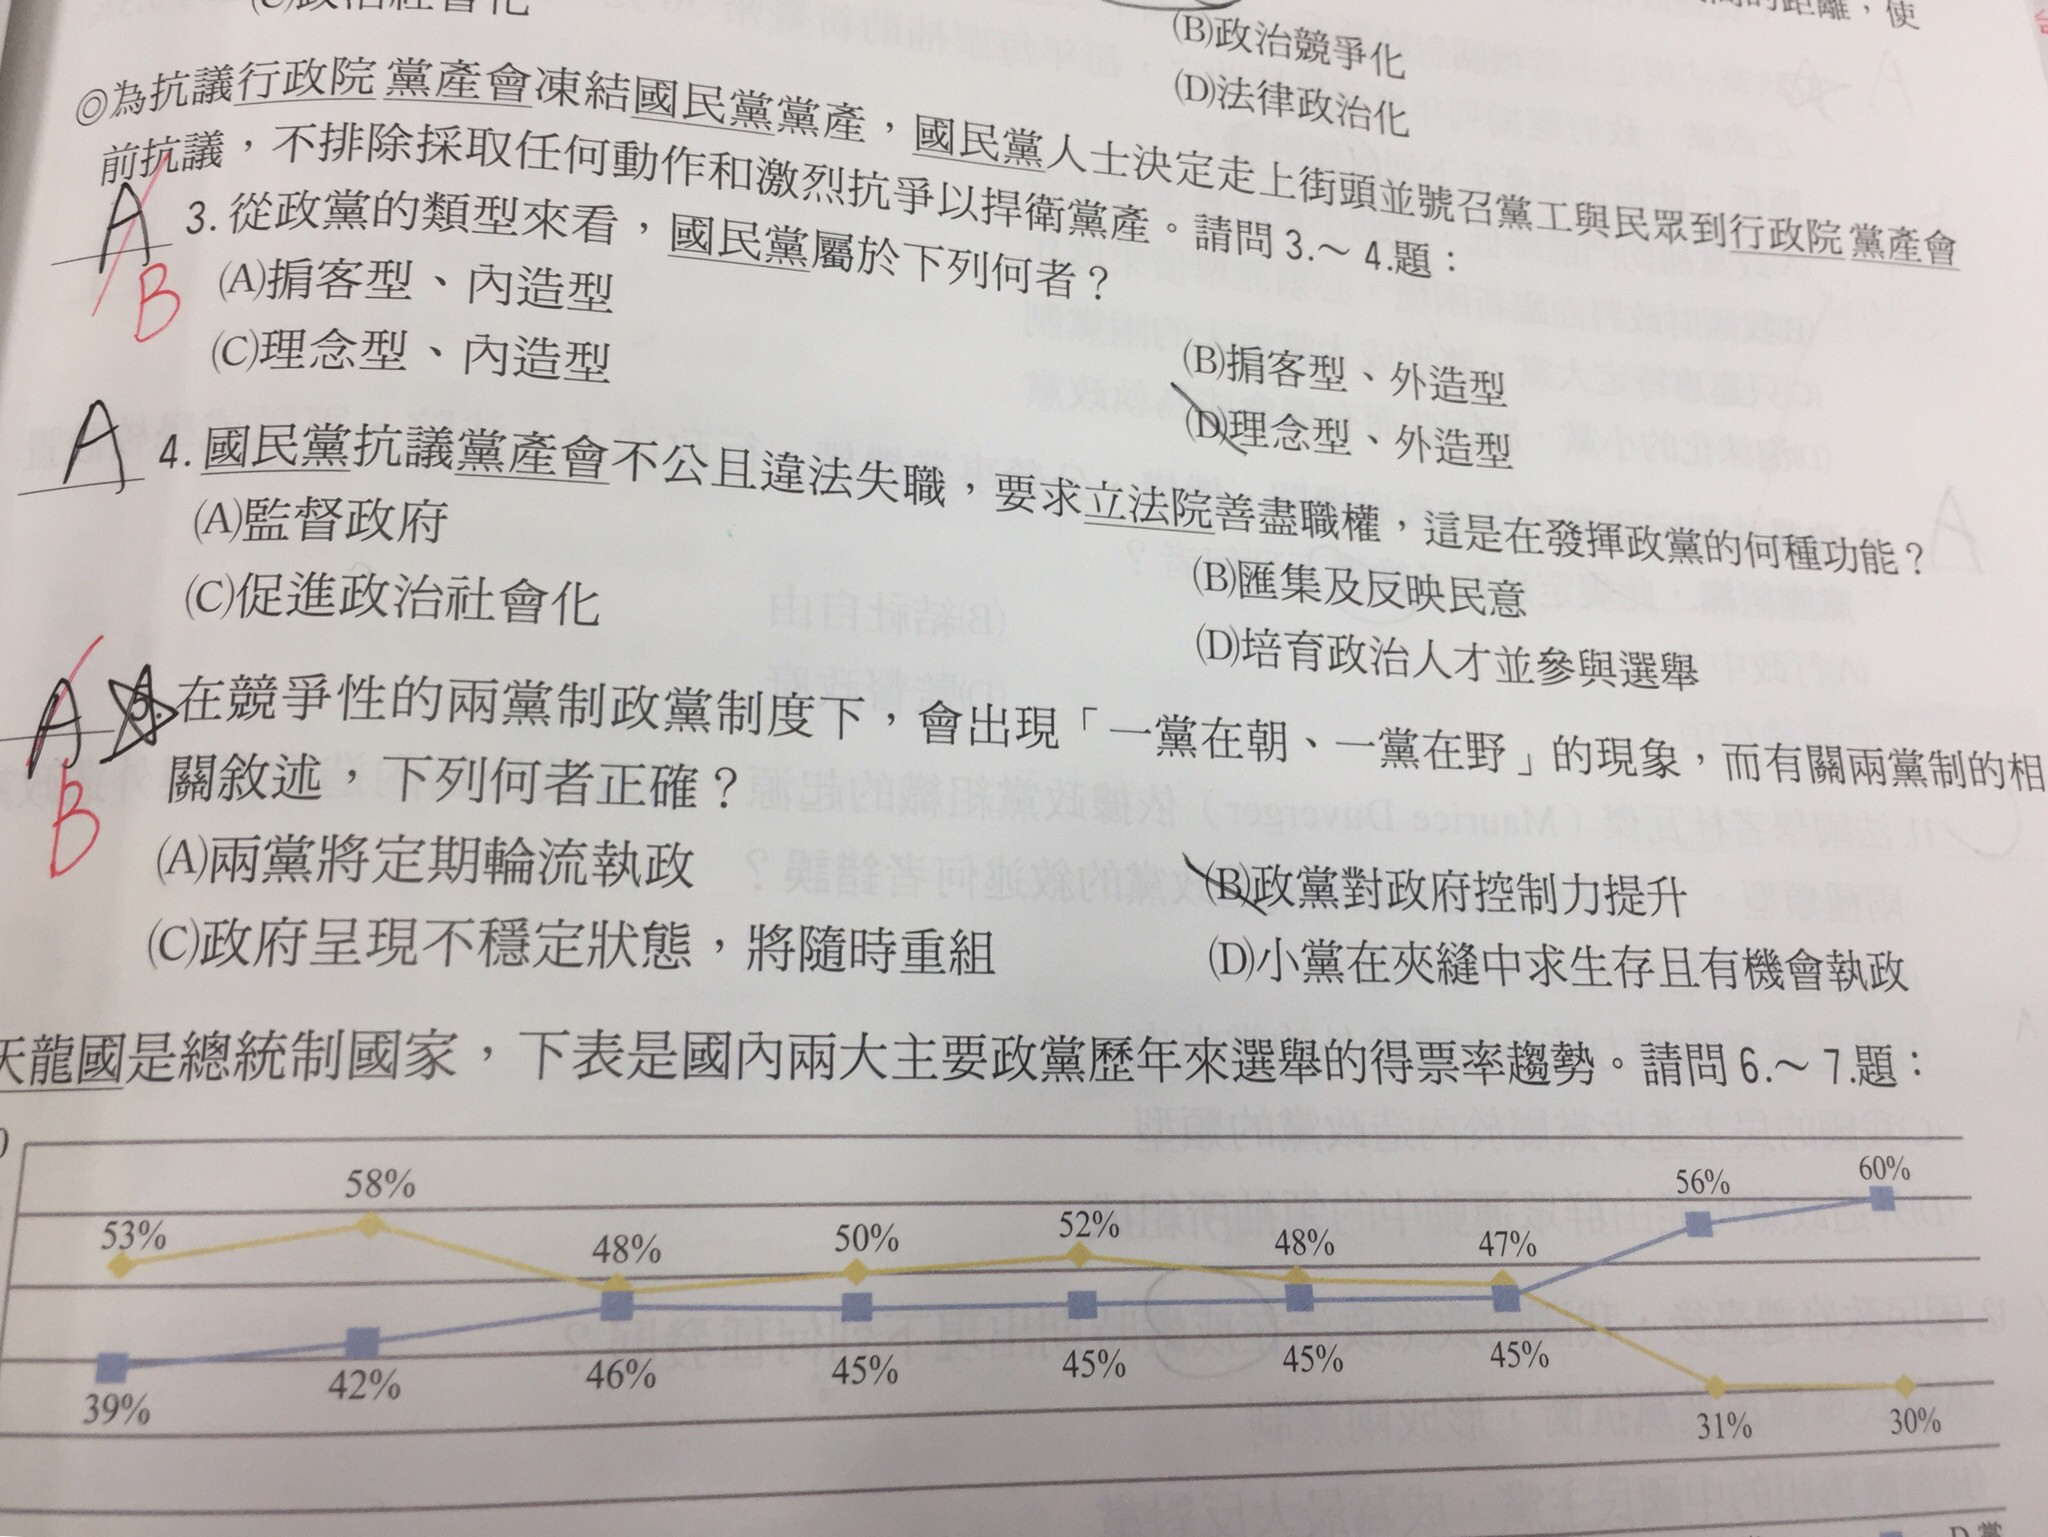 (C)政治社會化
的距離，使
(B)政治競爭化
(D)法律政治化
◎為抗議行政院 黨產會凍結國民黨黨產，國民黨人士決定走上街頭並號召黨工與民眾到行政院 黨產會
前抗議，不排除採取任何動作和激烈抗爭以捍衛黨產。請問3.～4.題：
A B 3. 從政黨的類型來看，國民黨屬於下列何者？
(A)掮客型、內造型
(B)掮客型、外造型
(C)理念型、內造型
(D)理念型、外造型
A 4. 國民黨抗議黨產會不公且違法失職，要求立法院善盡職權，這是在發揮政黨的何種功能？
(A)監督政府
(B)匯集及反映民意
(C)促進政治社會化
(D)培育政治人才並參與選舉
A B 5. 在競爭性的兩黨制政黨制度下，會出現「一黨在朝、一黨在野」的現象，而有關兩黨制的相
關敘述，下列何者正確？
(A)兩黨將定期輪流執政
(B)政黨對政府控制力提升
(C)政府呈現不穩定狀態，將隨時重組
(D)小黨在夾縫中求生存且有機會執政
天龍國是總統制國家，下表是國內兩大主要政黨歷年來選舉的得票率趨勢。請問6.～7.題：
53% 58% 48% 50% 52% 48% 47% 56% 60%
39% 42% 46% 45% 45% 45% 45% 31% 30%